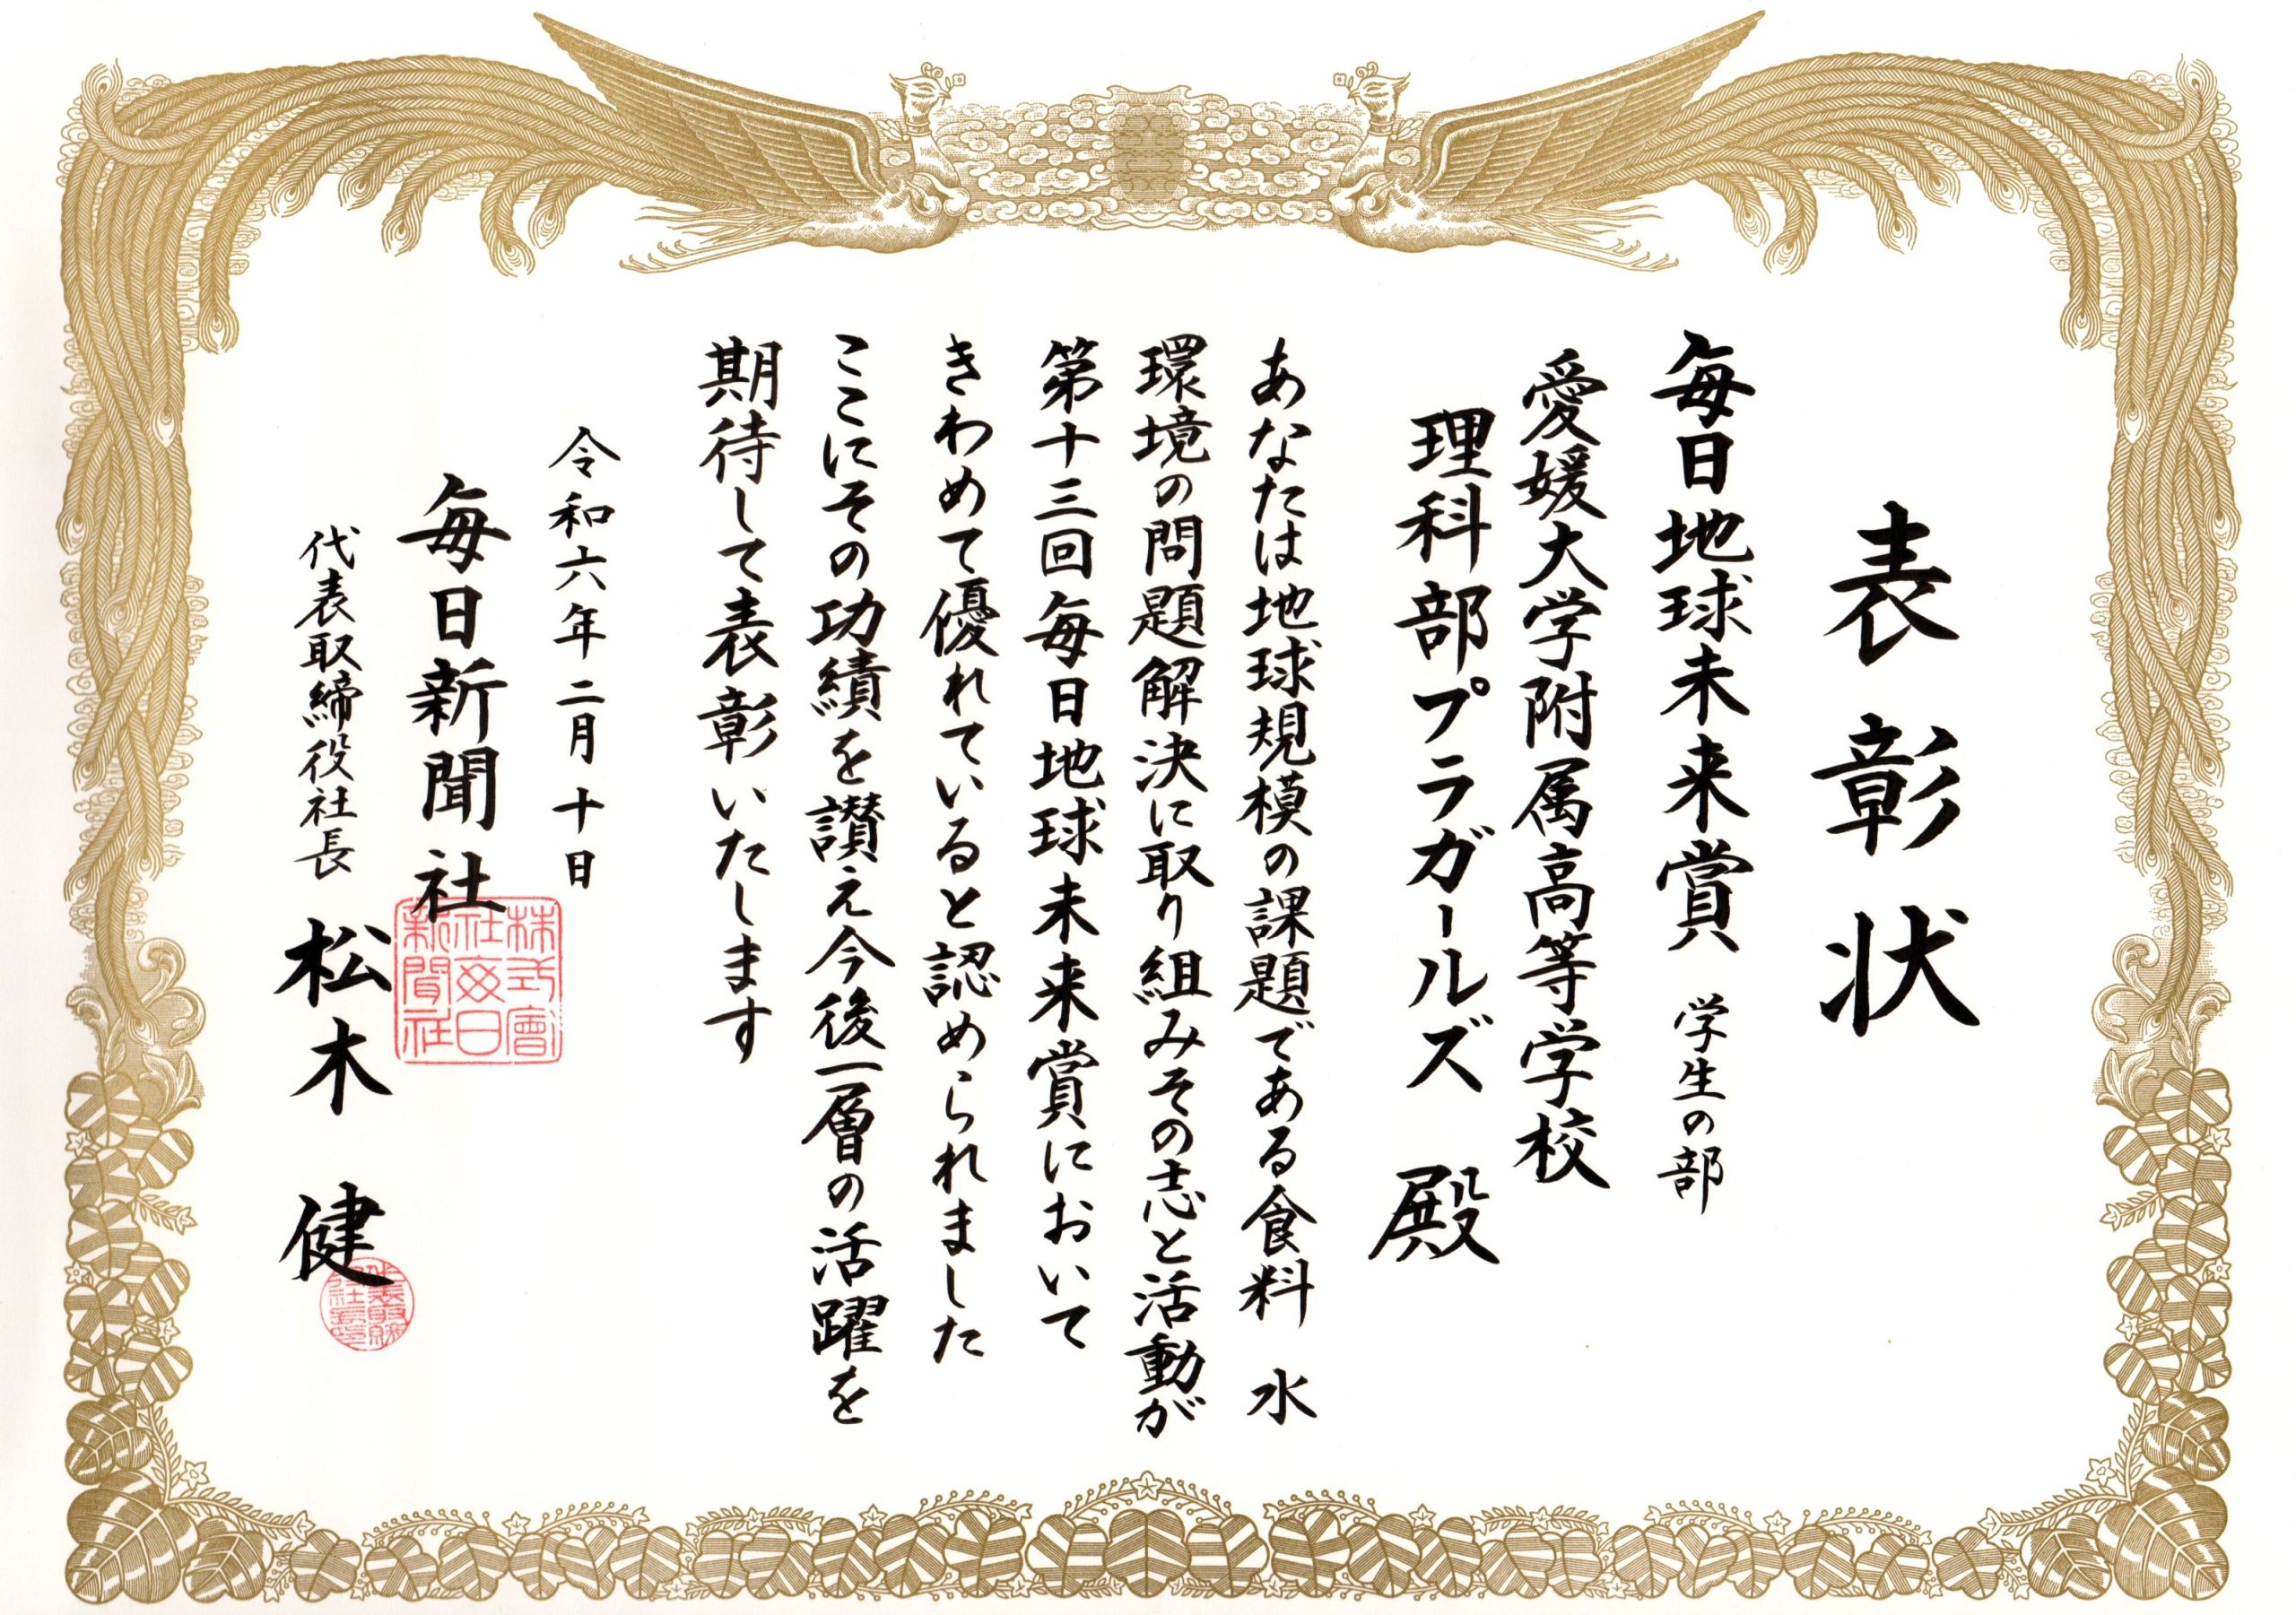 表彰状
毎日地球未来賞 学生の部
愛媛大学附属高等学校
理科部プラガールズ 殿
あなたは地球規模の課題である食料 水
環境の問題解決に取り組みその志と活動が
第十三回毎日地球未来賞において
きわめて優れていると認められました
ここにその功績を讃え今後一層の活躍を
期待して表彰いたします
令和六年二月十日
毎日新聞社
代表取締役社長 松木 健
株式會
社每日
新聞社